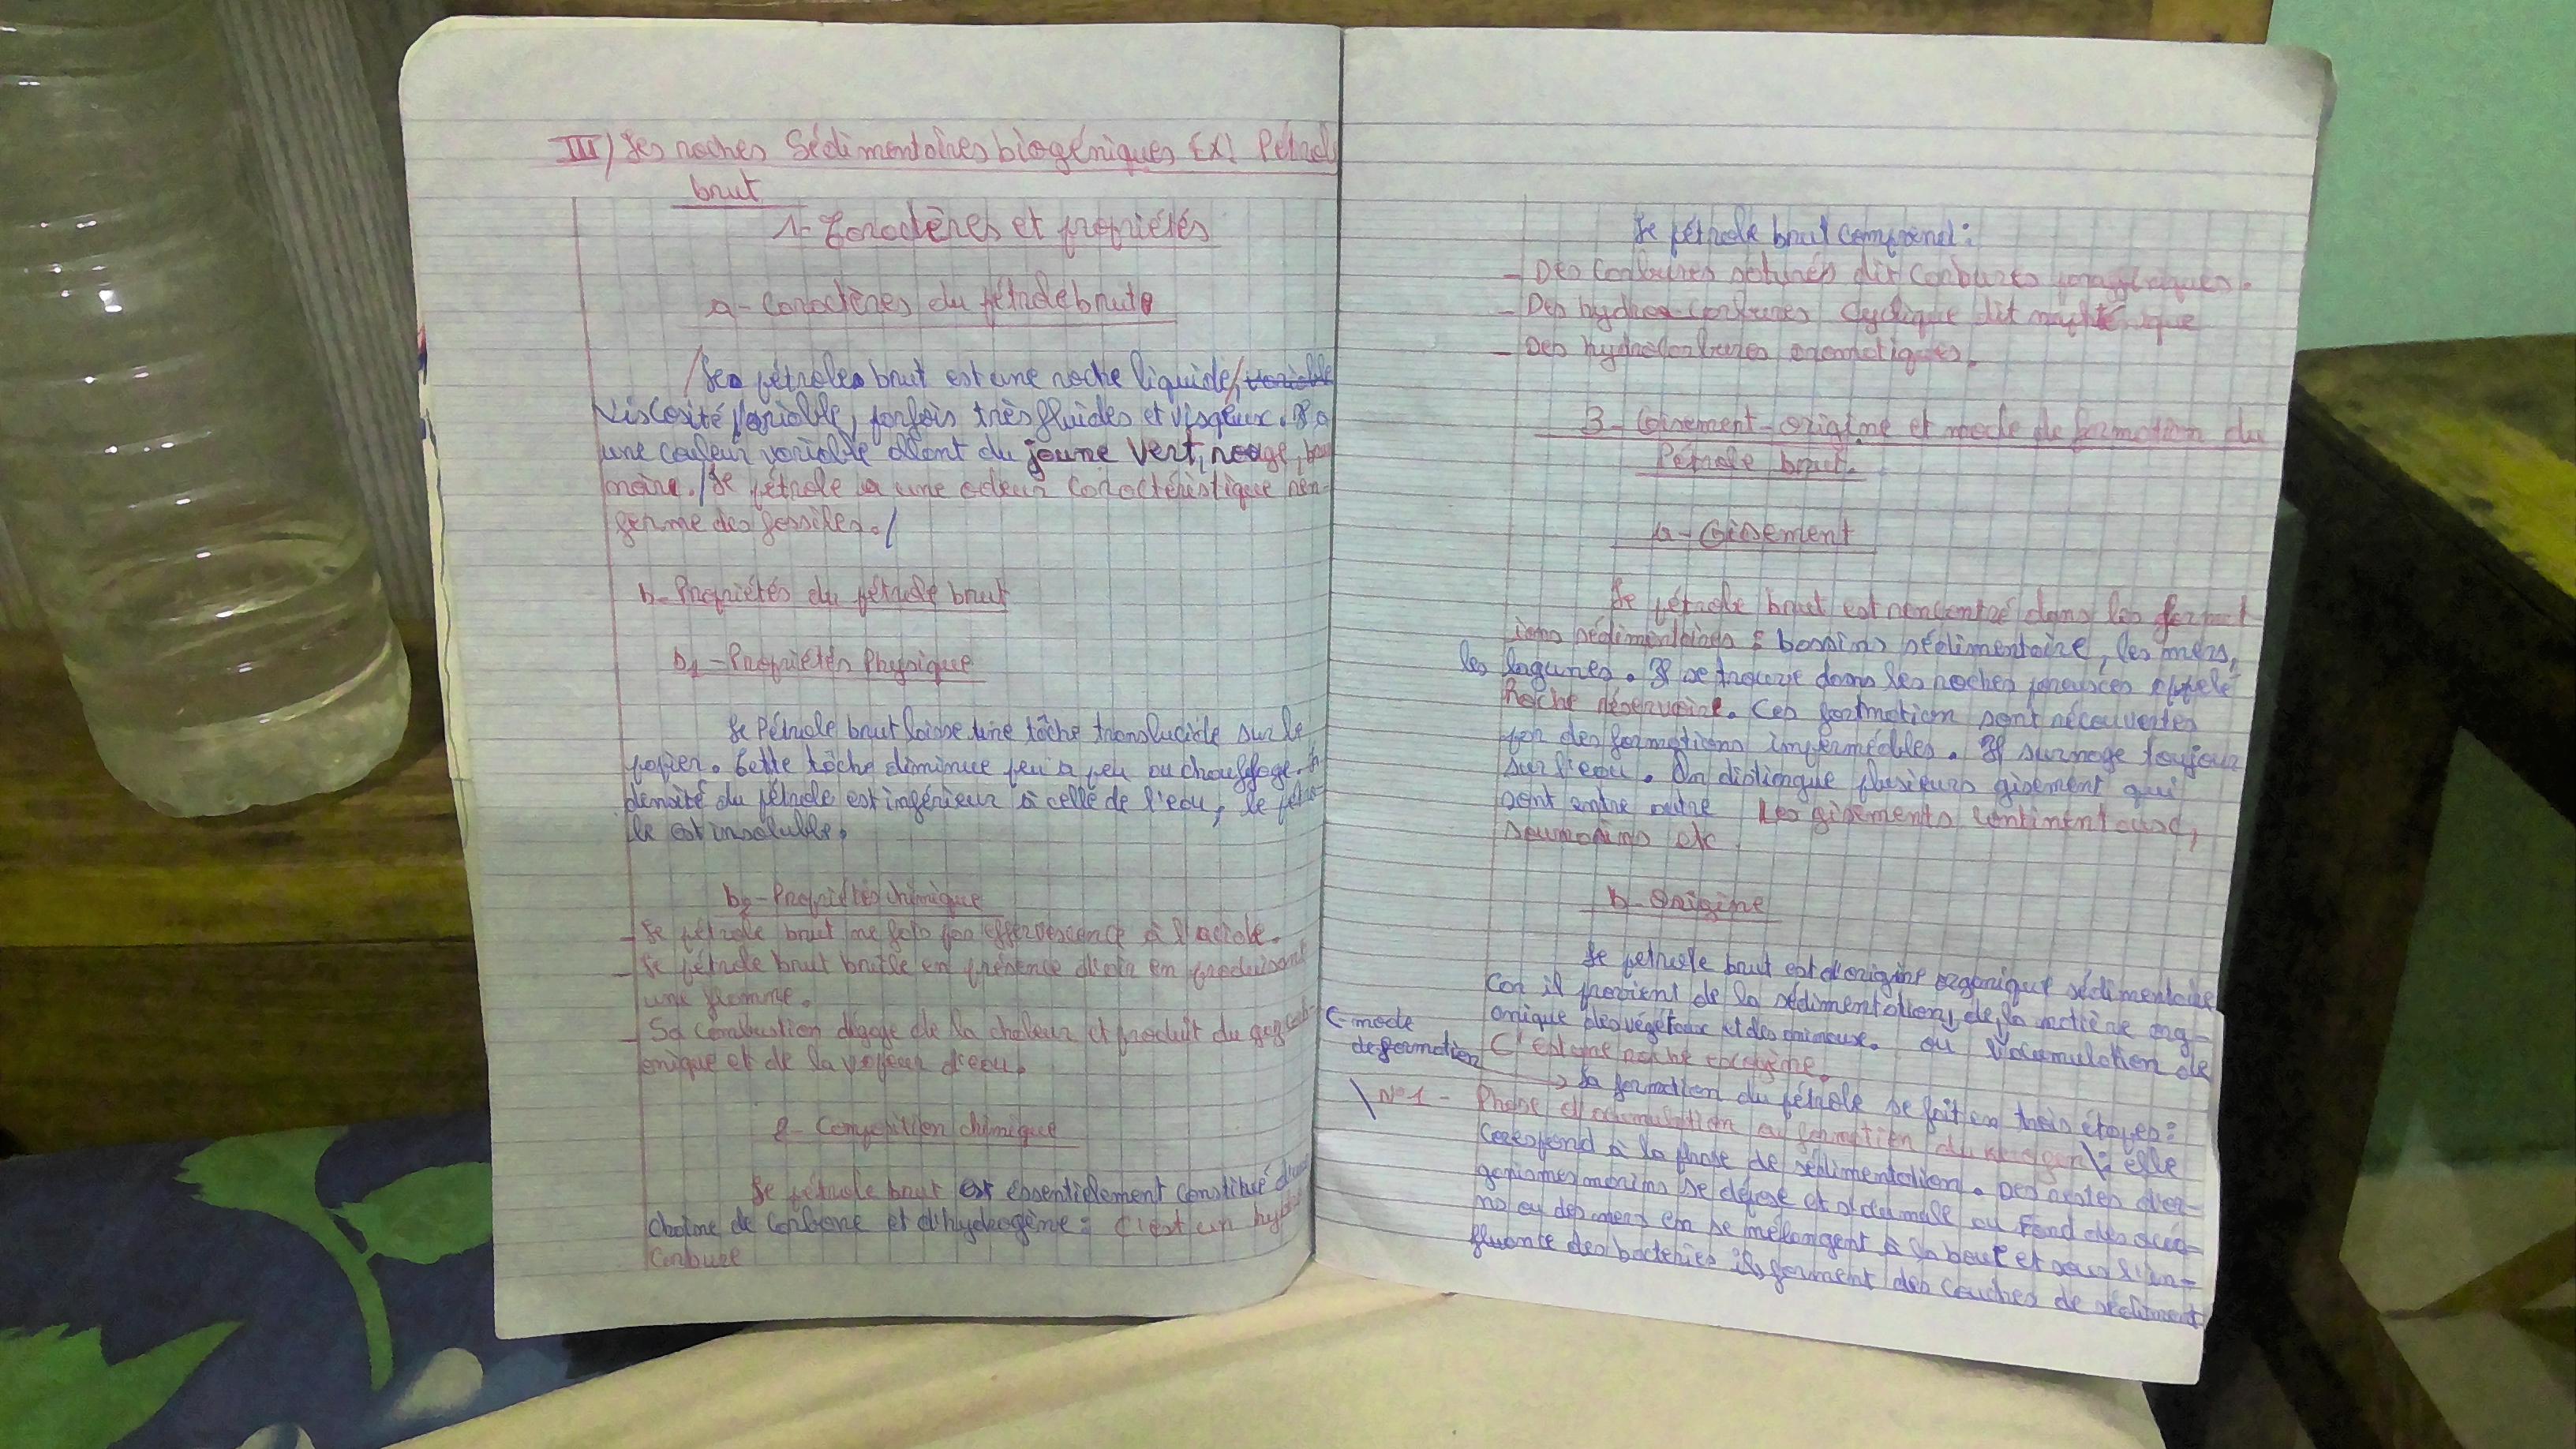 III/ Les roches Sédimentaires biogéniques EX: Pétrole
brut
1- Caractères et propriétés
a- Caractères du pétrole brut
Les pétroles brut est une roche liquide, variable
Viscosité variable, parfois très fluides et visqeux. Il a
une couleur variable allant du jaune vert, rouge, brun
noire. Le pétrole a une odeur caractéristique ren-
ferme des fossiles.
b- Propriétés du pétrole brut
b1- Propriétés Physique
Le Pétrole brut laisse une tâche translucide sur le
papier. Cette tâche diminue peu a peu au chauffage. la
densité du pétrole est inférieur à celle de l'eau, le pétro-
le est insoluble.
b2- Propriétés chimique
- Le pétrole brut ne fait pas effervescence à l'acide.
- Le pétrole brut brûle en présence d'air en produisant
une flamme.
- Sa combustion dégage de la chaleur et produit du gaz carb-
onique et de la vapeur d'eau.
2- Composition chimique
Le pétrole brut est essentielement constitué d'une
chaîne de carbone et d'hydrogène : c'est un hydro
carbure
Le pétrole brut comprend :
- Des Carbures saturés dit Carbures paraffiniques.
- Des hydro carbures cyclique dit
- Des hydrocarbures aromatiques.
3- Gisement - origine et mode de formation du
Pétrole brut.
a- Gisement
Le pétrole brut est rencontré dans les format
ions sédimentaires : bassins sédimentaire, les mers,
les lagunes. Il se trouve dans les roches poreuses appelé
Roche réservoire. Ces formation sont récouvertes
par des formations imperméables. Il surnage toujour
sur l'eau. On distingue plusieurs gisement qui
sont entre autre les gisements continentaux,
soumarins etc
b- Origine
Le petrole brut est d'origine organique sédimentaire
Car il provient de la sédimentation, de la matière org-
anique des végétaux et des animaux. ou l'acumulation de
C'est une roche exogène.
C- mode
de formation
→ La formation du pétrole se fait en trois étapes :
N°1 - Phase d'acumulation ou formation du kérogèn : elle
Corespond à la phase de sédimentation. Des restes d'or-
ganismes marins se dépose et s'acumule au Fond des océa-
ns ou des mers en se mélangent à la boue et sous l'in-
fluence des bacteries ils forment des couches de sédiment